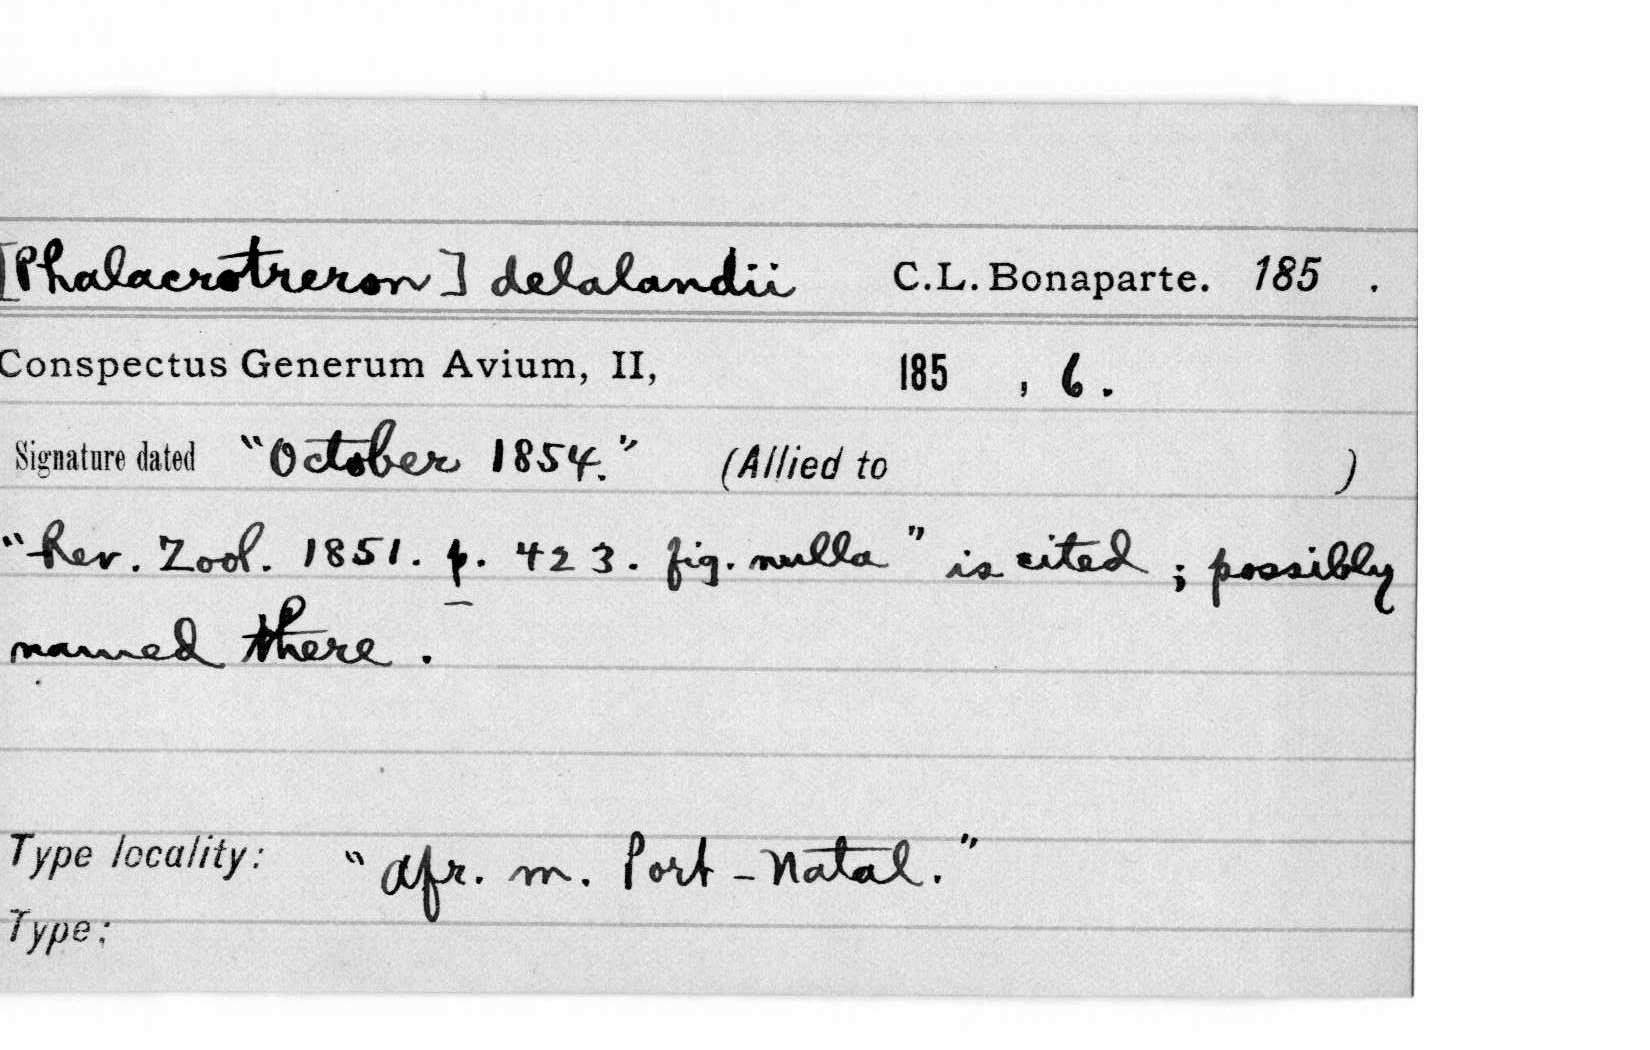 [Phalacrotreron] delalandii C.L. Bonaparte. 185 .
Conspectus Generum Avium, II, 185 , 6.
Signature dated "October 1854." (Allied to )
"Rev. Zool. 1851. p. 423. fig. nulla" is cited ; possibly
named there .
Type locality: "Afr. m. Port-Natal."
Type: